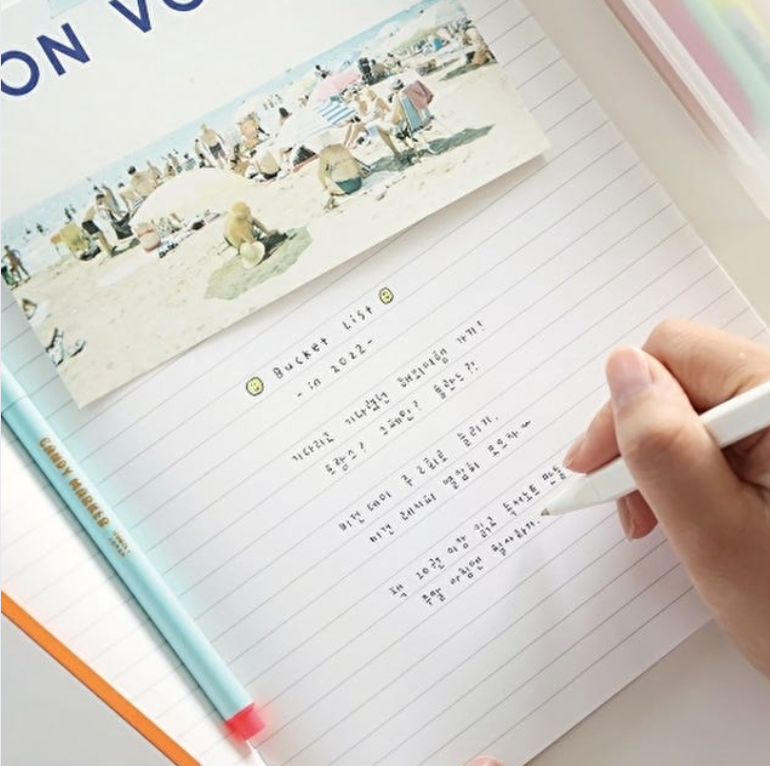 ON VO
Bucket List
- in 2022 -
기다리고 기다렸던 해외여행 가기!
프랑스? 스페인? 폴란드?!
비건 데이 주 2회로 늘리기.
비건 레시피 열심히 모으자~
책 20권 이상 읽고 독서노트 만들
주말 아침엔 필사하기.
CANDY MARKER